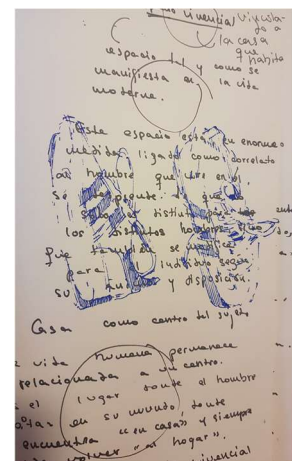 vivencial vincula-
do a
la casa
que
habita
espacio tal y como se
manifiesta en la vida
moderna.
Este espacio está en enorme
medida ligado como correlato
al hombre que vive en él
se de que
distinto
los distintos
que también se modifica
para individuo según
su y disposición.
Casa como centro del sujeto
vida humana permanece
relacionada a un centro.
es el lugar donde el hombre
en su mundo, donde
encuentra «en casa» y siempre
volver "al hogar".
vivencial